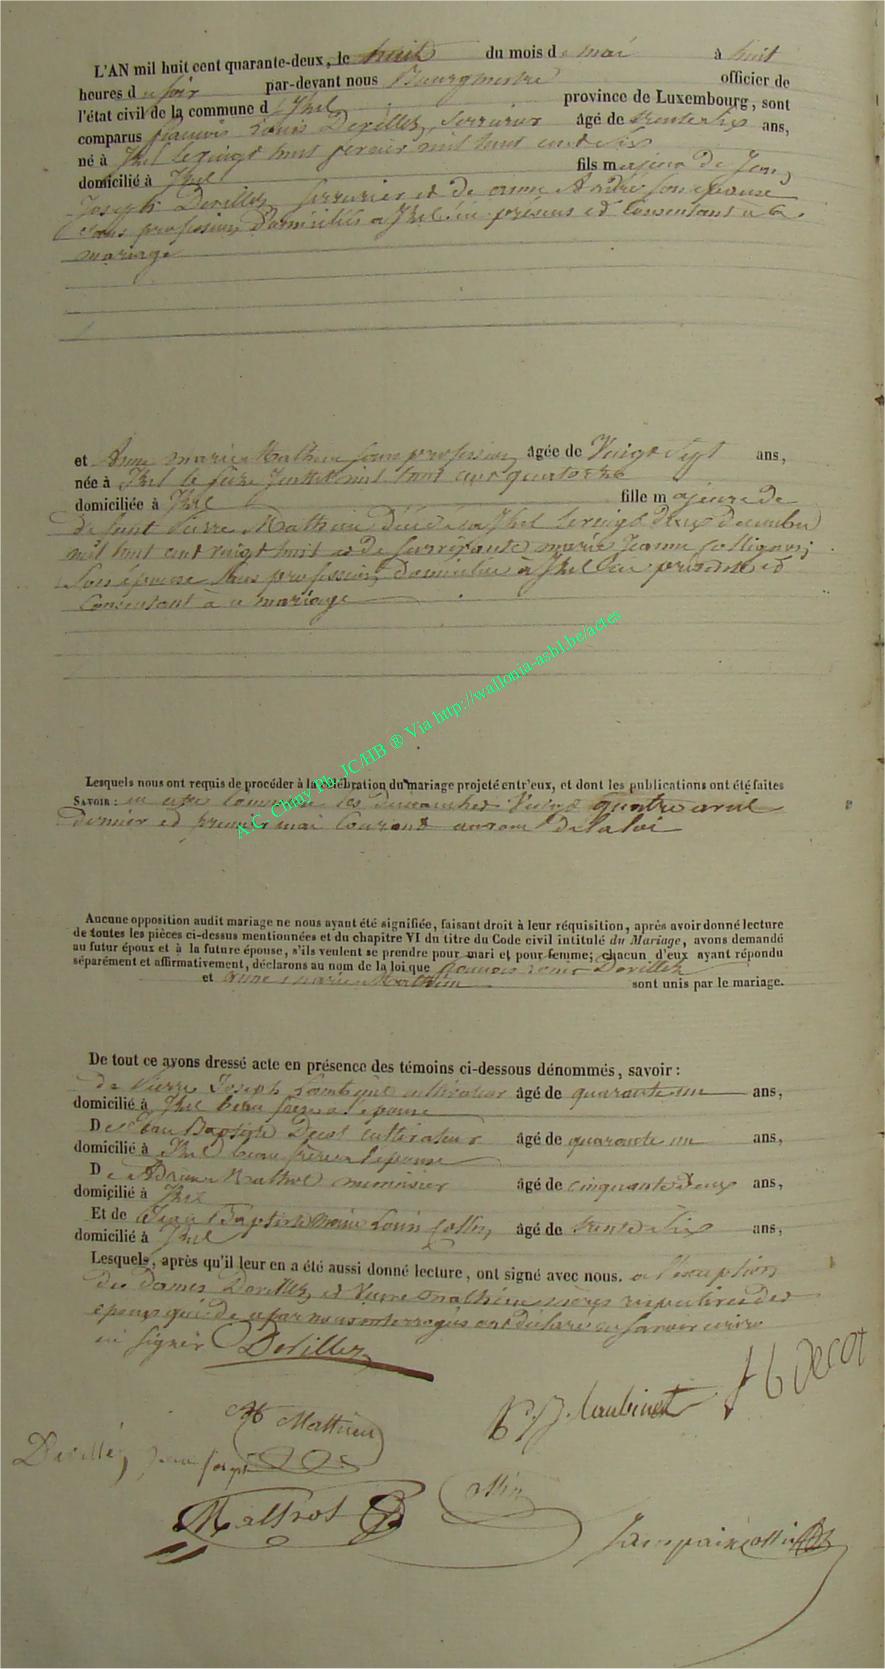 L'AN mil huit cent quarante-deux, le huit du mois de mai à huit
heures du soir par-devant nous Bourgmestre officier de
l'état civil de la commune d'Izel province de Luxembourg, sont
comparus françois Louis Devillez, serrurier âgé de trente Six ans,
né à Izel le vingt huit fevrier mil huit cent Six
domicilié à Izel fils majeur de Jean
Joseph Devillez Serrurier et de anne André Son epouse
sans profession domiciliés a Izel ici présens et consentant à ce
mariage
et Anne marie Mathieu sans profession âgée de Vingt Sept ans,
née à Izel le seize Juillet mil huit cent quatorze
domiciliée à Izel fille majeure de
defunt Pierre Mathieu Décédé à Izel le vingt deux decembre
mil huit cent vingt huit et de survivante marie Jeanne Collignon
Son épouse Sans profession domiciliée à Izel ici présente et
Consentant à ce mariage
Lesquels nous ont requis de procéder à la célébration du mariage projeté entr'eux, et dont les publications ont été faites
SAVOIR : en cette commune les dimanches Vingt quatre avril
dernier et premier mai Courant au nom de la loi
Aucune opposition audit mariage ne nous ayant été signifiée, faisant droit à leur réquisition, après avoir donné lecture
de toutes les pièces ci-dessus mentionnées et du chapitre VI du titre du Code civil intitulé du Mariage, avons demandé
au futur époux et à la future épouse, s'ils veulent se prendre pour mari et pour femme; chacun d'eux ayant répondu
séparément et affirmativement, déclarons au nom de la loi que françois Louis Devillez
et anne marie Mathieu sont unis par le mariage.
De tout ce avons dressé acte en présence des témoins ci-dessous dénommés, savoir :
de Pierre Joseph cultivateur âgé de quarante un ans,
domicilié à Izel beau frere a l'epouse
De Jean Baptiste Decot cultivateur âgé de quarante un ans,
domicilié à Izel beau frere a l'epouse
De Mathot menuisier âgé de cinquante deux ans,
domicilié à Izel
Et de Jean Baptiste Louis Collin âgé de trente Six ans,
domicilié à Izel
Lesquels, après qu'il leur en a été aussi donné lecture, ont signé avec nous. a l'exception
des dames Devillez et Veuve mathieu mères respectives des
epoux qui de ce par nous interrogés ont déclaré ne savoir ecrire
ni signer Devillez
Mathieu
P. J. Laubinet J b Decot
Devillez Jean Joseph
Mathot Collin
A.C. Chiny Ph. JC/HB ® Via http://wallonia-asbl.be/actes